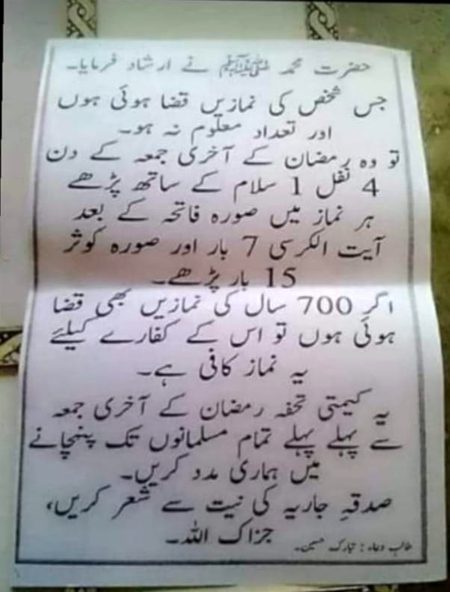 حضرت محمد ﷺ نے ارشاد فرمایا۔
جس شخص کی نمازیں قضا ہوئی ہوں
اور تعداد معلوم نہ ہو۔
تو وہ رمضان کے آخری جمعہ کے دن
4 نفل 1 سلام کے ساتھ پڑھے
ہر نماز میں صورہ فاتحہ کے بعد
آیت الکرسی 7 بار اور صورہ کوثر
15 بار پڑھے۔
اگر 700 سال کی نمازیں بھی قضا
ہوئی ہوں تو اس کے کفارے کیلئے
یہ نماز کافی ہے۔
یہ کیمتی تحفہ رمضان کے آخری جمعہ
سے پہلے پہلے تمام مسلمانوں تک پہنچانے
میں ہماری مدد کریں۔
صدقہِ جاریہ کی نیت سے شعر کریں،
جزاک اللہ۔
طالب دعاء: تبارک حسین۔